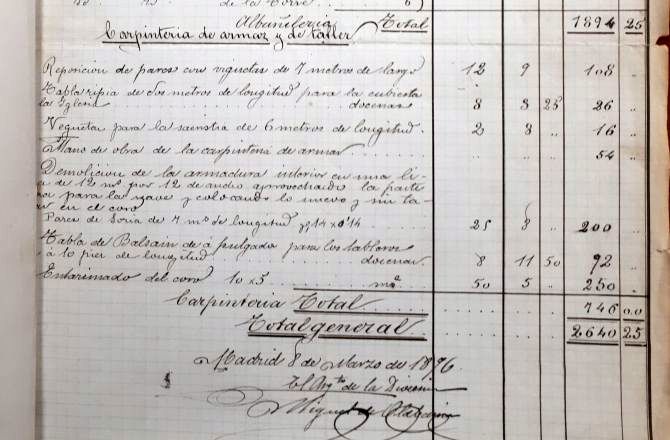 de la Torre
Albañilería Total 1894 25
Carpinteria de armar y de taller
Reposicion de pares con viguetas de 7 metros de largo 12 9 108 "
Tabla ripia de dos metros de longitud para la cubierta
la Iglesia docenas 8 3 25 26 "
Viguetas para la 6 metros de longitud. 2 8 16 "
Mano de obra de la carpinteria de armar 54 "
Demolicion de la armadura interior en una li-
de 12 ms por 12 de ancho aprovechando la parte
para la nave y colocando lo nuevo y
en el coro
Pares de Soria de 7 ms de longitud 14 x 0'14 25 8 " 200 "
Tabla de Balsain de á pulgada para los tableros
á 10 pies de longitud docenas 8 11 50 92 "
Entarimado del coro 10 x 5 m² 50 5 " 250 "
Carpinteria Total 746 00
Total general 2640 25
Madrid 8 de Marzo de 1876
El Arqto de la Division
Miguel de